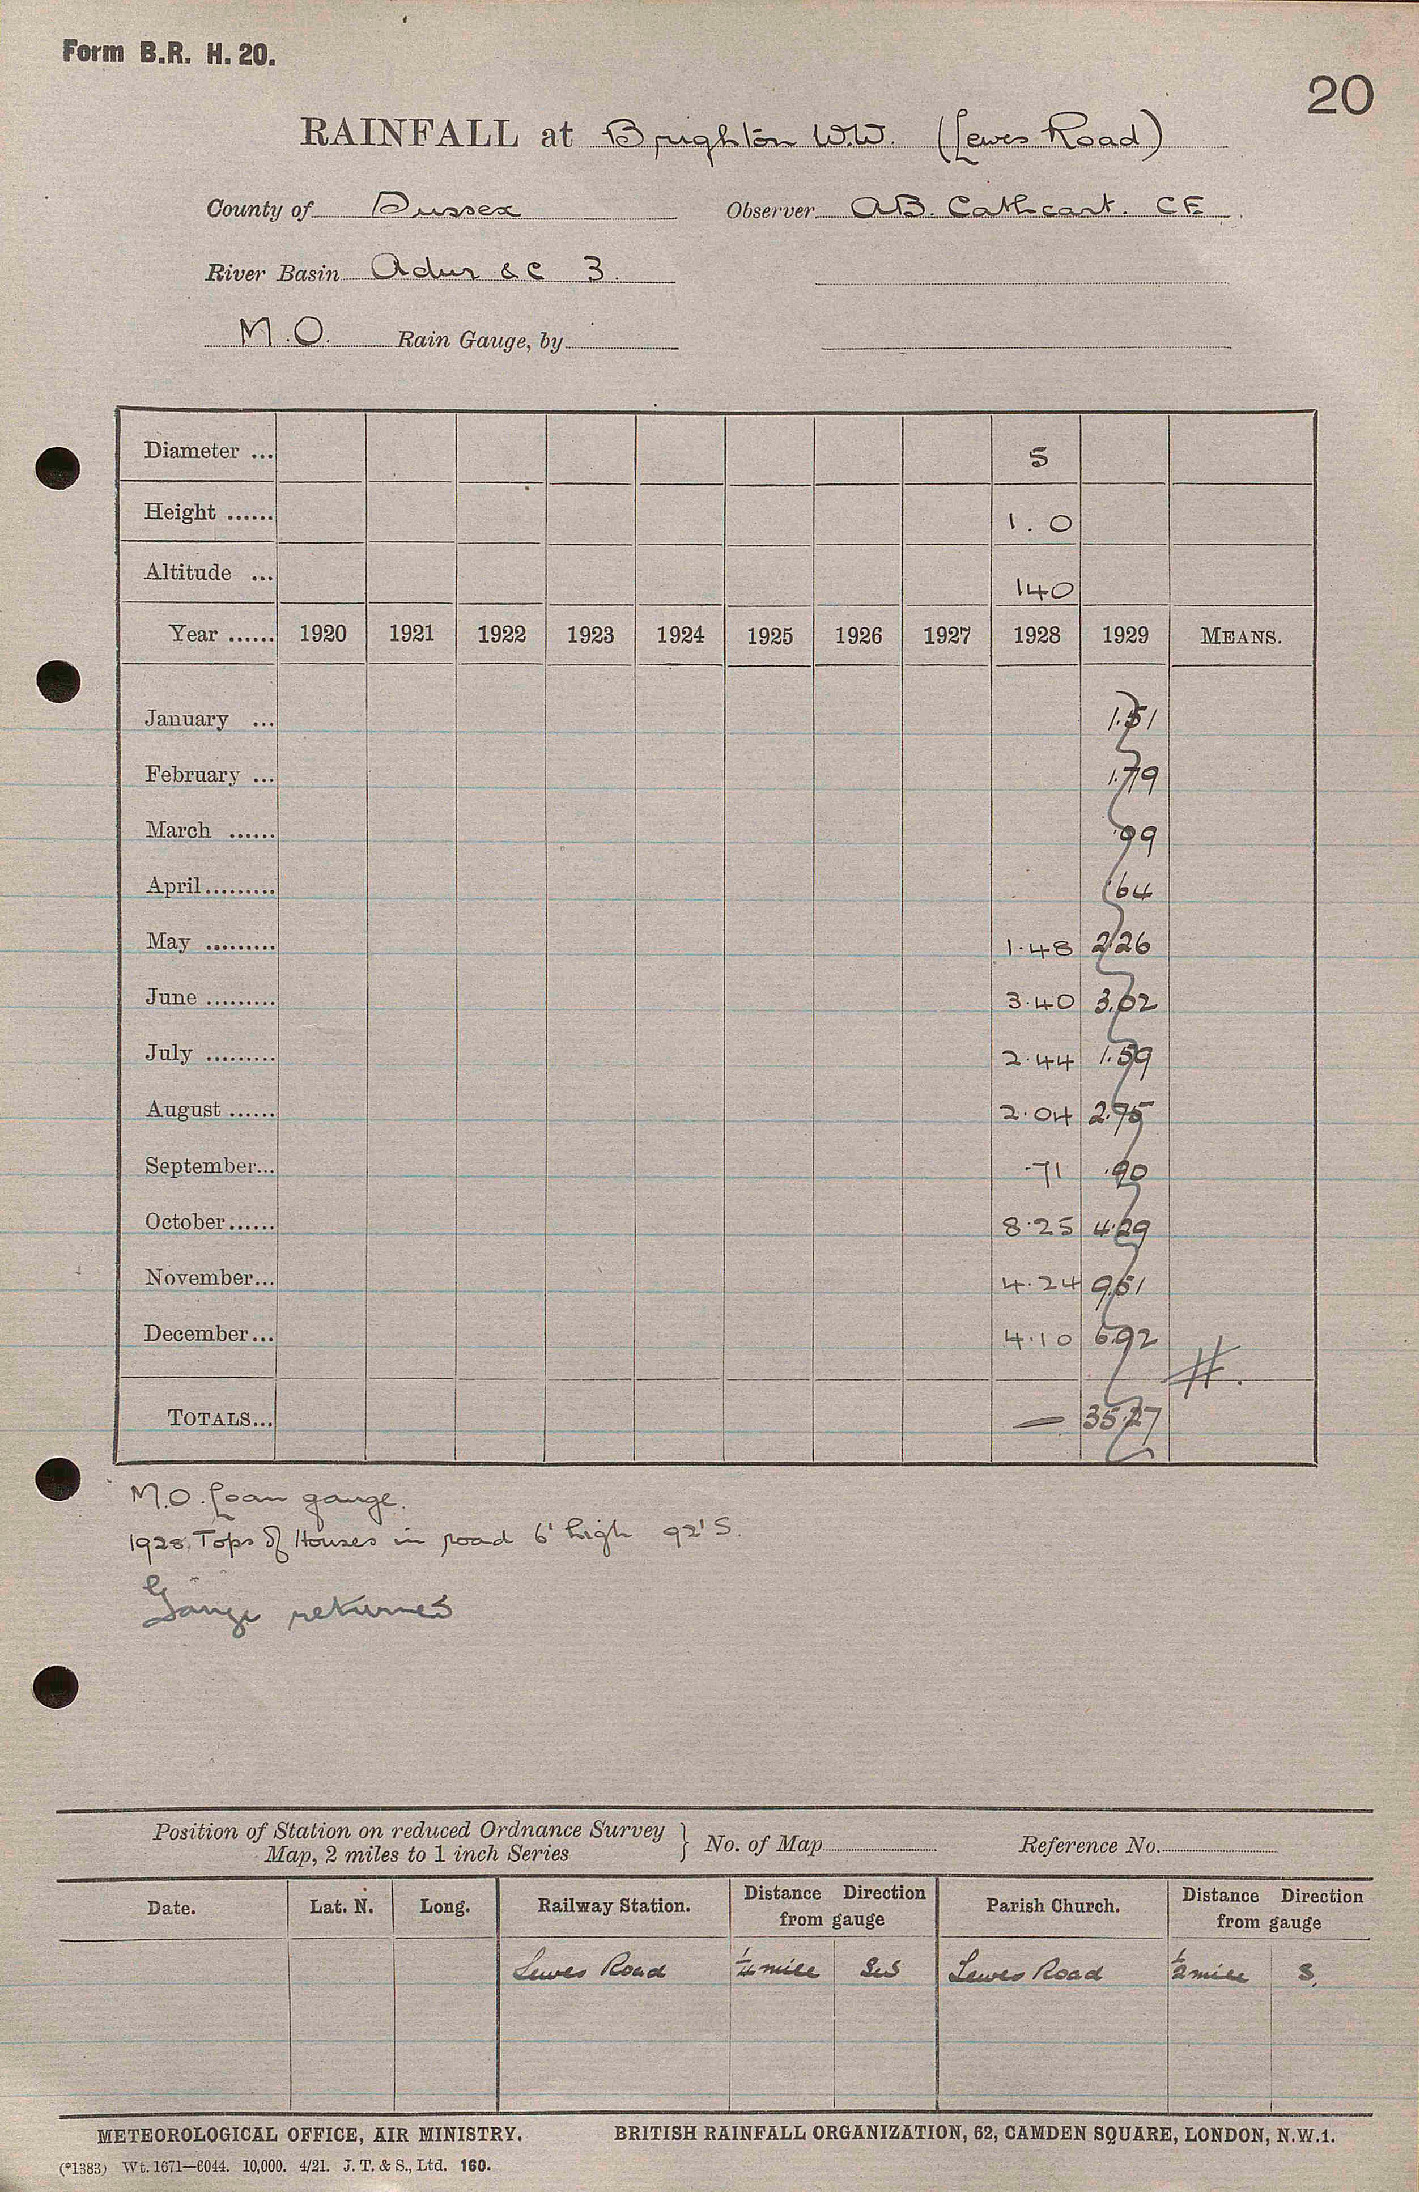 Form B.R. H. 20.
20
RAINFALL at Brighton W.W. (Lewes Road)
County of Sussex Observer A.B. Cathcart. CE
River Basin Adur &c 3.
M.O. Rain Gauge, by
Diameter ... 5
Height ...... 1.0
Altitude ... 140
Year ...... 1920 1921 1922 1923 1924 1925 1926 1927 1928 1929 MEANS.
January ... 1.51
February ... 1.79
March ...... .99
April......... .64
May ......... 1.48 2.26
June ......... 3.40 3.02
July ......... 2.44 1.59
August ...... 2.04 2.75
September... .71 .90
October...... 8.25 4.29
November... 4.24 9.61
December... 4.10 5.92
#.
TOTALS... — 35.27
M.O. Loan gauge.
1928. Tops of Houses in road 6' high 92' S.
Gauge returned
Position of Station on reduced Ordnance Survey
Map, 2 miles to 1 inch Series } No. of Map Reference No.
Date. Lat. N. Long. Railway Station. Distance Direction from gauge Parish Church. Distance Direction from gauge
Lewes Road 1/4 mile Lewes Road 1/2 mile S.
METEOROLOGICAL OFFICE, AIR MINISTRY. BRITISH RAINFALL ORGANIZATION, 62, CAMDEN SQUARE, LONDON, N.W.1.
(*1383) Wt. 1671—6044. 10,000. 4/21. J. T. & S., Ltd. 160.